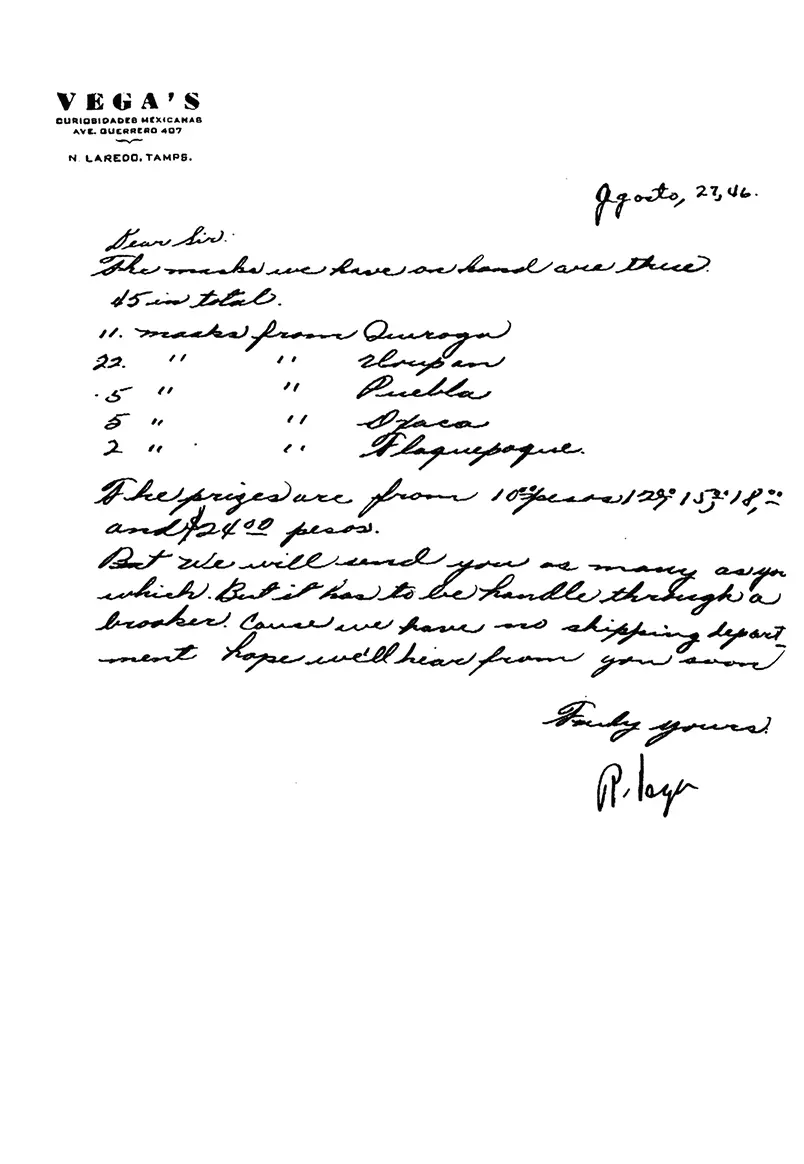 VEGA'S
CURIOSIDADES MEXICANAS
AVE. GUERRERO 407
N. LAREDO, TAMPS.
Agosto, 27, 46.
Dear Sir:
The masks we have on hand are these.
45 in total.
11. masks from Quiroga
22. " " Urupan
5 " " Puebla
5 " " Oxaca
2 " " Tlaquepaque.
The prizes are from 10.00 pesos 12.00, 15.00, 18.00
and $24.00 pesos.
But we will send you as many as you
which. But it has to be handle through a
brooker. Cause we have no shipping depart-
ment hope we'll hear from you soon
Truly yours.
R.